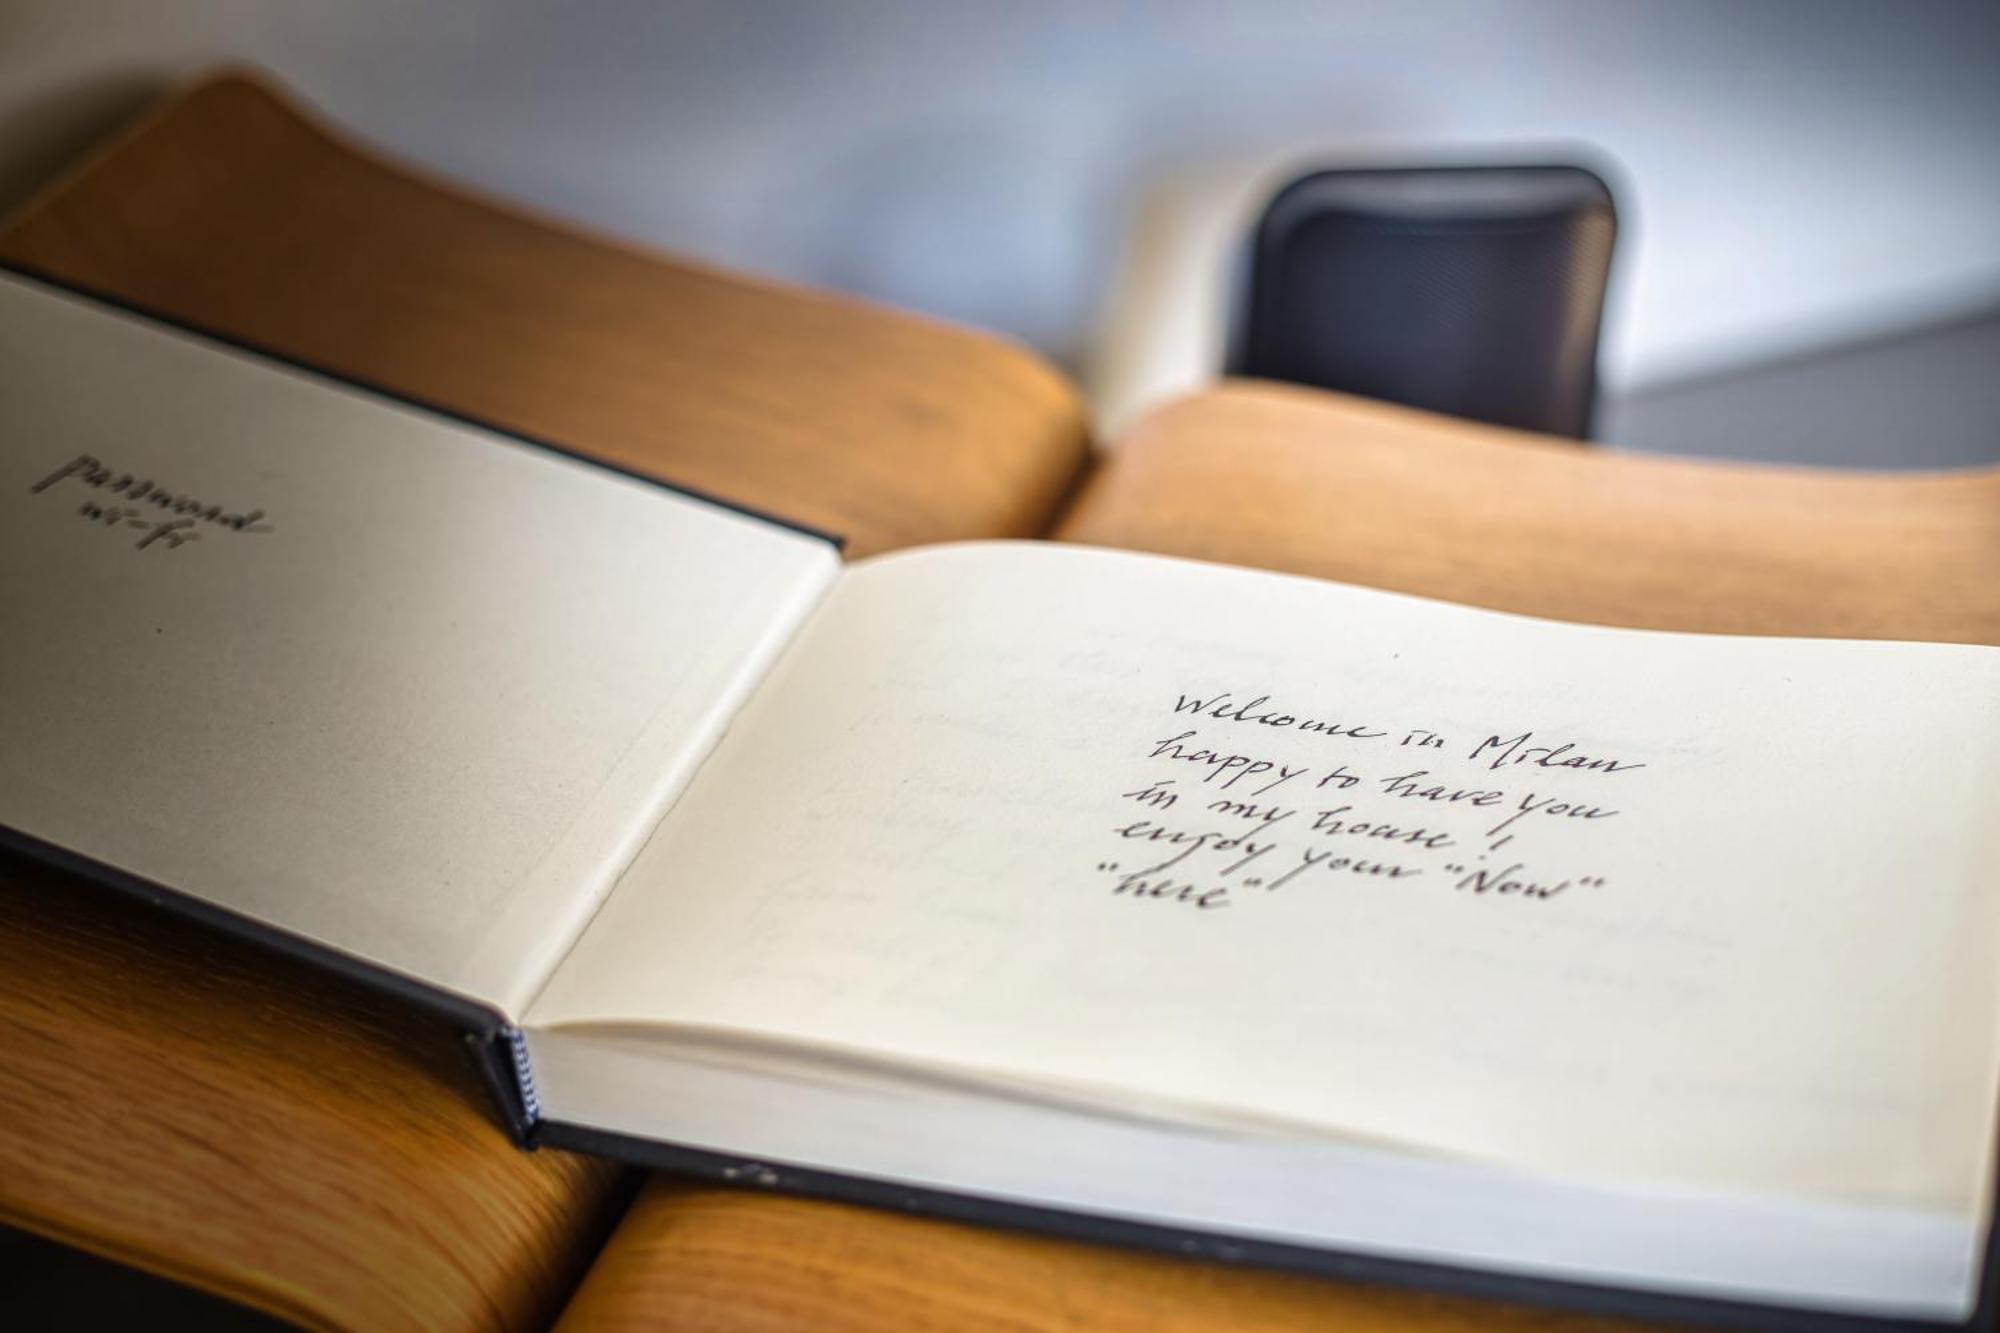 password
wi-fi
Welcome in Milan
happy to have you
in my house!
enjoy your "Now"
"here"